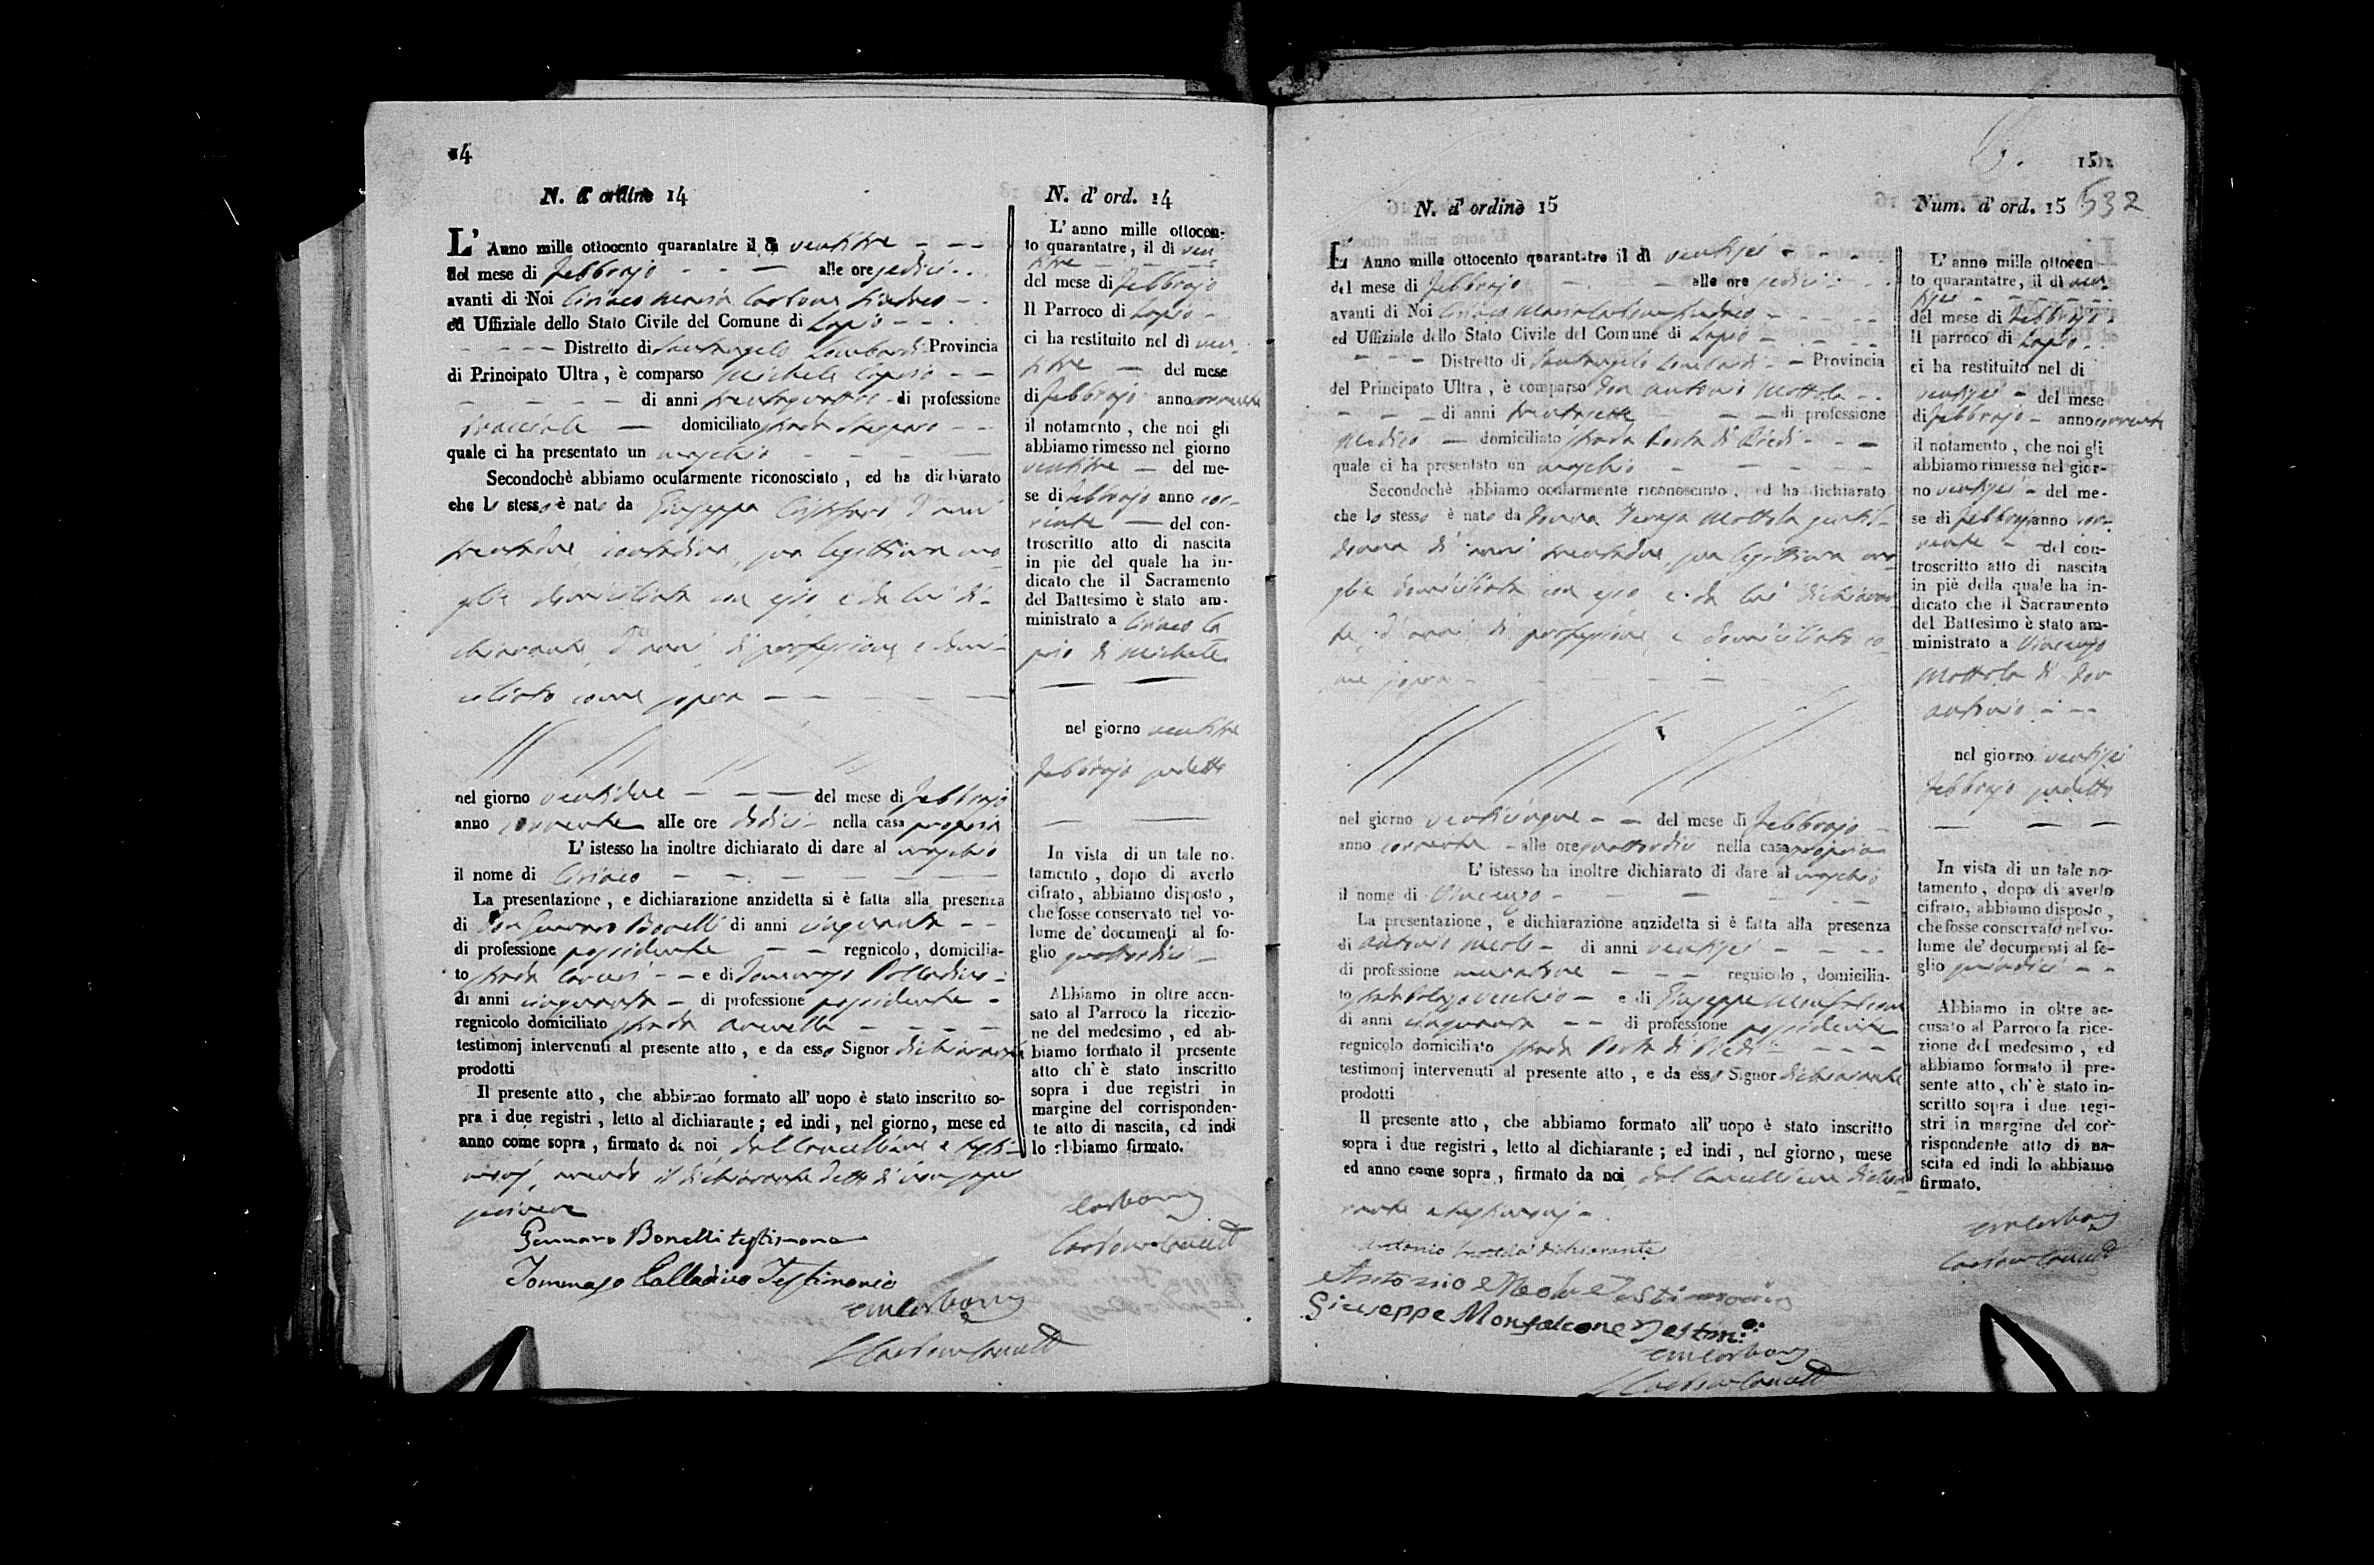 14
N. d' ordine 14
L' Anno mille ottocento quarantatre il dì ventitre
del mese di febbrajo alle ore sedici
avanti di Noi Ciriaco Maria Carbone Sindaco
ed Uffiziale dello Stato Civile del Comune di Lapio
Distretto di Santangelo Lombardi Provincia
di Principato Ultra, è comparso Michele
di anni trentaquattro di professione
bracciale domiciliato strada
quale ci ha presentato un maschio
Secondochè abbiamo ocularmente riconosciuto, ed ha dichiarato
che lo stesso è nato da Giuseppa d'anni
trentadue, contadina, sua legittima mo-
glie domiciliata con esso e da lui di-
chiarante, d'anni, di professione, e domi-
ciliato come sopra
nel giorno ventidue del mese di febbrajo
anno corrente alle ore dodici nella casa propria
L' istesso ha inoltre dichiarato di dare al maschio
il nome di Ciriaco
La presentazione, e dichiarazione anzidetta si è fatta alla presenza
di Don Gennaro Bonelli di anni cinquanta
di professione possidente regnicolo, domicilia-
to strada Carceri e di Tommaso Palladino
di anni cinquanta di professione possidente
regnicolo domiciliato strada
testimonj intervenuti al presente atto, e da esso Signor dichiarante
prodotti
Il presente atto, che abbiamo formato all' uopo è stato inscritto so-
pra i due registri, letto al dichiarante; ed indi, nel giorno, mese ed
anno come sopra, firmato da noi dal Cancelliere e testi-
monj, avendo il dichiarante detto di non saper
scrivere
Gennaro Bonelli testimone
Tommaso Palladino Testimonio
N. d' ord. 14
L' anno mille ottocen-
to quarantatre, il dì ven
titre
del mese di febbrajo
Il Parroco di Lapio
ci ha restituito nel dì ven-
titre del mese
di febbrajo anno corrente
il notamento, che noi gli
abbiamo rimesso nel giorno
ventitre del me-
se di febbrajo anno cor-
rente del con-
troscritto atto di nascita
in piè del quale ha in-
dicato che il Sacramento
del Battesimo è stato am-
ministrato a Ciriaco
di Michele
nel giorno ventitre
febbrajo sudetto
In vista di un tale no-
tamento, dopo di averlo
cifrato, abbiamo disposto,
che fosse conservato nel vo-
lume de' documenti al fo-
glio quattordici
Abbiamo in oltre accu-
sato al Parroco la ricezio-
ne del medesimo, ed ab-
biamo formato il presente
atto ch' è stato inscritto
sopra i due registri in
margine del corrisponden-
te atto di nascita, ed indi
lo abbiamo firmato.
15
532
N. d' ordine 15
L' Anno mille ottocento quarantatre il dì ventisei
del mese di febbrajo alle ore sedici
avanti di Noi Ciriaco Maria Carbone Sindaco
ed Uffiziale dello Stato Civile del Comune di Lapio
Distretto di Santangelo Lombardi Provincia
del Principato Ultra, è comparso Don Antonio Mottola
di anni trentasette di professione
Medico domiciliato strada Porta di Piedi
quale ci ha presentato un maschio
Secondochè abbiamo ocularmente riconosciuto, ed ha dichiarato
che lo stesso è nato da Donna Teresa Mottola gentil-
donna di anni trentadue, sua legittima mo-
glie domiciliata con esso e da lui dichiaran
te, d'anni, di professione, e domiciliato co-
me sopra
nel giorno venticinque del mese di febbrajo
anno corrente alle ore quattordici nella casa propria
L' istesso ha inoltre dichiarato di dare al maschio
il nome di Vincenzo
La presentazione, e dichiarazione anzidetta si è fatta alla presenza
di Antonio Meola di anni ventisei
di professione muratore regnicolo, domicilia-
to strada Palazzo Vecchio e di Giuseppe Monfalcone
di anni cinquanta di professione possidente
regnicolo domiciliato strada Porta di Piedi
testimonj intervenuti al presente atto, e da esso Signor dichiarante
prodotti
Il presente atto, che abbiamo formato all' uopo è stato inscritto
sopra i due registri, letto al dichiarante; ed indi, nel giorno, mese
ed anno come sopra, firmato da noi dal Cancelliere dichia-
rante e testimonj
Antonio Mottola dichiarante
Antonio Meola Testimonio
Giuseppe Monfalcone Testim:o:
Num. d' ord. 15
L' anno mille ottocen
to quarantatre, il dì ven-
tisei
del mese di febbrajo
Il parroco di Lapio
ci ha restituito nel di
ventisei del mese
di febbrajo anno corrente
il notamento, che noi gli
abbiamo rimesse nel gior-
no ventisei del me-
se di febbrajo anno cor-
rente del con-
troscritto atto di nascita
in piè della quale ha in-
dicato che il Sacramento
del Battesimo è stato am-
ministrato a Vincenzo
Mottola di Don
Antonio
nel giorno ventisei
febbrajo sudetto
In vista di un tale no-
tamento, dopo di averlo
cifrato, abbiamo disposto,
che fosse conservato nel vo-
lume de' documenti al fo-
glio quindici
Abbiamo in oltre ac-
cusato al Parroco la rice-
zione del medesimo, ed
abbiamo formato il pre-
sente atto, ch' è stato in-
scritto sopra i due regi-
stri in margine del cor-
rispondente atto di na-
scita ed indi lo abbiamo
firmato.